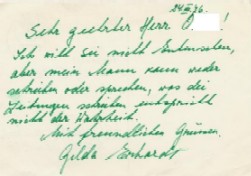 24.III.96.
Sehr geehrter Herr J. !
Ich will sei nicht Entenschen,
aber mein Mann kann weder
schreiben oder sprechen, was dei
Zeitungen schreiben entspricht
nicht der Wahrheit.
Mit freundlichen Grüssen.
Gilda